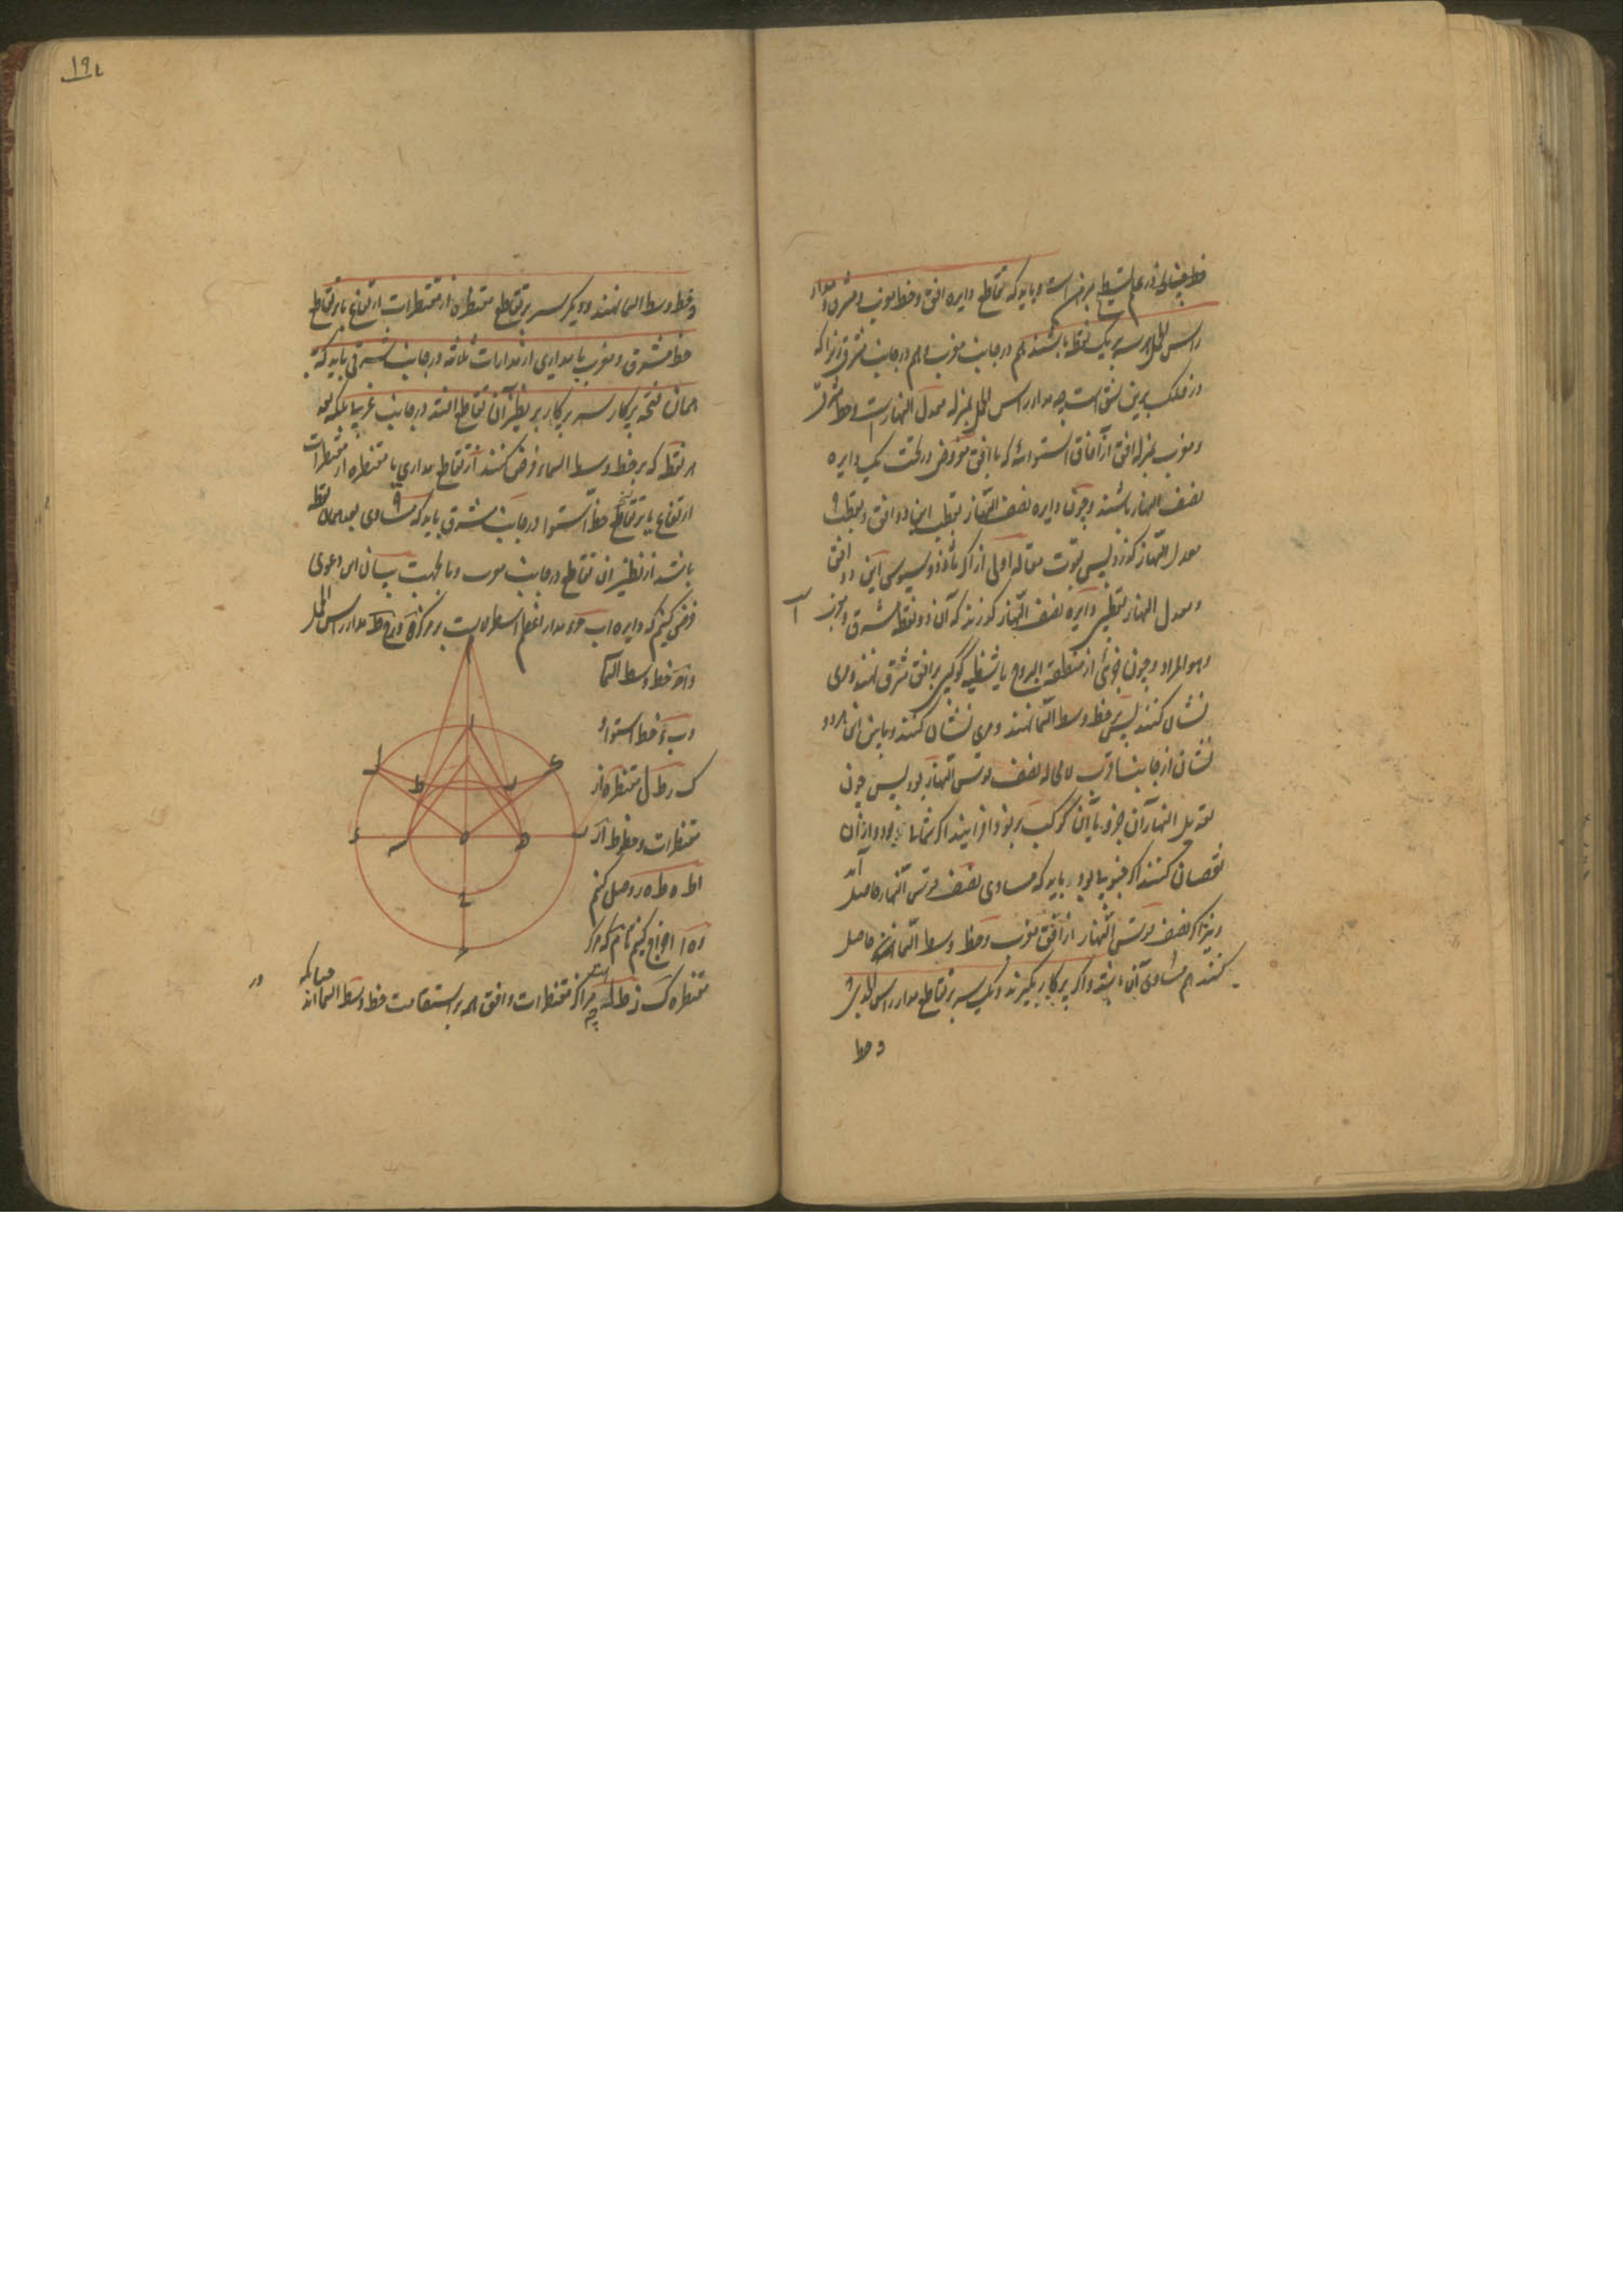 خط چنانکه در علم تسطیح مبرهن است و باید که تقاطع دایره افق و خط مغرب و مشرق و مدار
راس الحمل هر سه بر یک نقطه باشند هم در جانب مغرب و هم در جانب مشرق زیرا که
در فلک برین نسق است چه مدار راس الحمل بمنزله معدل النهار است و خط مشرق
و مغرب بمنزله افق از آفاق استوائیه که با افق مفروض در تحت یک دایره
نصف النهار باشند و چون دایره نصف النهار بقطب این دو افق و بقطب
معدل النهار گذرد پس بقوت مقاله اولی از اکر ثاوذوسیوس این دو افق
و معدل النهار بقطبی دایره نصف النهار گذرند که آن دو نقطه مشرق و مغرب
و هو المراد و چون جزوی از منطقة البروج یا شظیه کوکبی بر افق مشرق نهند و مری
نشان کنند پس بر خط وسط السما نهند و مری نشان کنند و مابین این هر دو
نشان از جانب اقرب لامحاله نصف قوس النهار بود پس چون
تعدیل النهار آن جزو یا آن کوکب بر نود افزایند اگر شمالی بود و از آن
نقصان کنند اگر جنوبی بود باید که مساوی نصف قوس النهار حاصل آید
و نیز اگر نصف قوس النهار از افق مغرب و خط وسط السما حاصل
کنند هم مساوی آن باشد و اگر پرکار بگیرند و یک سر بر تقاطع مدار راس الجدی
و خط
۱۹
و خط وسط السما نهند و دیگر سر بر تقاطع مقنطره از مقنطرات ارتفاع یا بر تقاطع
خط مشرق و مغرب با مداری از مدارات ثلاثه در جانب شرقی باید که
همان فتحه پرکار سر پرکار بر نظیر آن تقاطع افتد در جانب غربی بلکه بعد
هر نقطه که بر خط وسط السماء فرض کنند از تقاطع مداری با مقنطره از مقنطرات
ارتفاع یا بر تقاطع خط استوا در جانب مشرق باید که مساوی بعد همان نقطه
باشد از نظیر آن تقاطع در جانب مغرب و بجهت بیان این دعوی
فرض کنیم که دایره اب حء مدار اعظم اسطرلابست بر مرکز ه و زح ط مدار راس الحمل
و اه ح خط وسط السما
و ب ء خط استوا و
ک ر ط ل مقنطره از
مقنطرات و خطوط ار
اط ه ط ه ر وصل کنیم
و ه ا اخراج کنیم تا م که مرکز
مقنطره ک ز ط ل است چه مراکز مقنطرات و افق هم بر استقامت خط وسط السما اند چنانکه
در